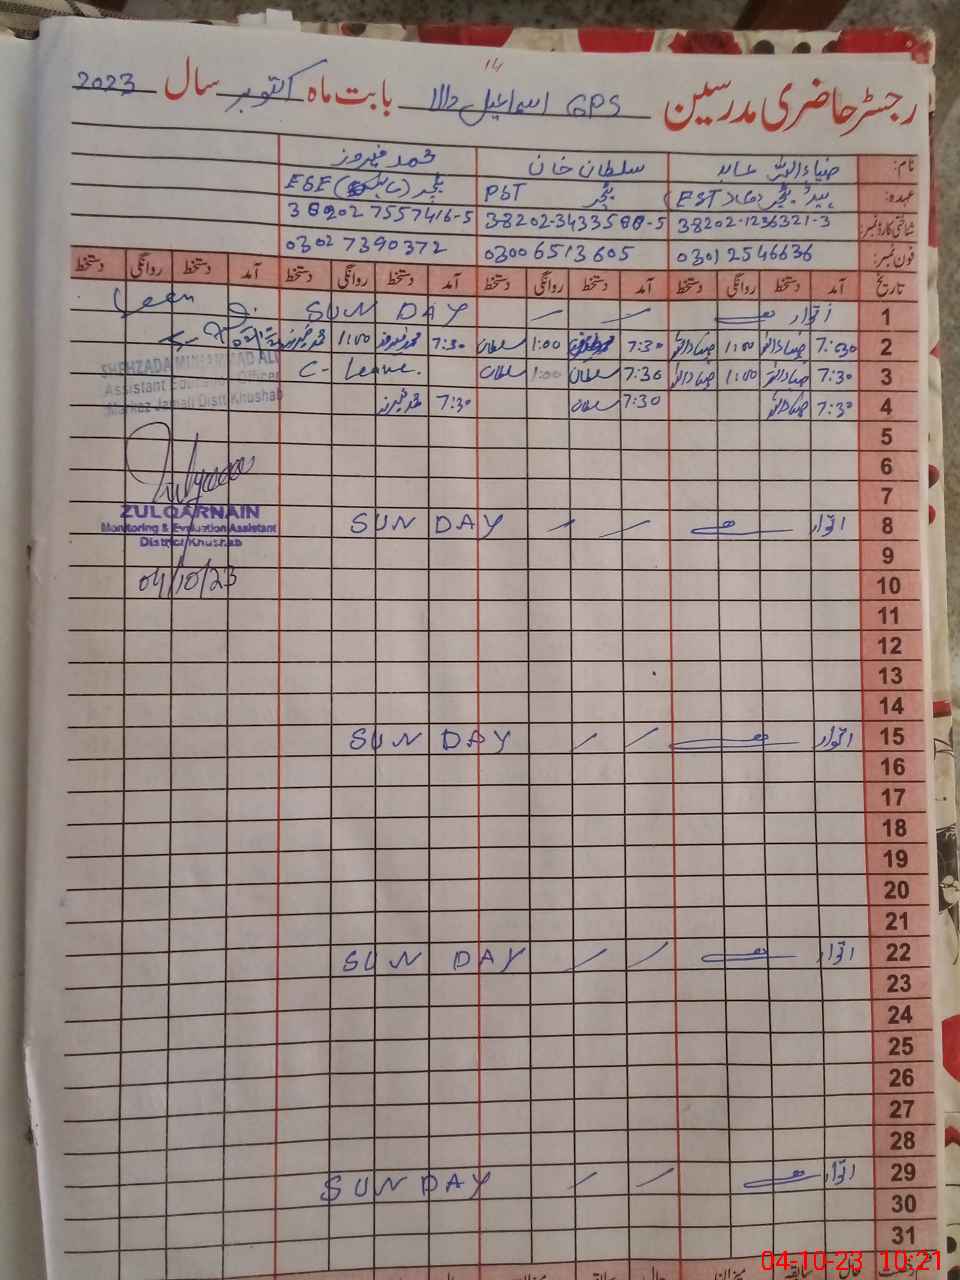 14
رجسٹر حاضری مدرسین GPS اسماعیل والا بابت ماہ اکتوبر سال 2023
نام: ضیاء الدین عابد سلطان خان محمد فیروز
عہدہ: ہیڈ ٹیچر (EST) ٹیچر PST ٹیچر ESE
شناختی کارڈ نمبر: 38202-1236321-3 38202-3433588-5 38202 7557416-5
فون نمبر: 03012546636 03006513605 03027390372
تاریخ آمد دستخط روانگی دستخط آمد دستخط روانگی دستخط آمد دستخط روانگی دستخط آمد دستخط روانگی دستخط
1 اتوار SUN DAY Seen
2 7:30 1:00 7:30 1:00 سلطان 7:30 محمد فیروز 1:00 محمد فیروز
3 7:30 1:00 7:30 سلطان 1:00 سلطان C- Leave.
4 7:30 7:30 سلطان 7:30 محمد فیروز
SHEHZADA MUHAMMAD ALI
Assistant Education Officer
Markaz Jamali Distt Khushab
5
6
7
8 اتوار SUN DAY
ZULQARNAIN
Monitoring & Evaluation Assistant
District Khushab
9
10
04/10/23
11
12
13
14
15 اتوار SUN DAY
16
17
18
19
20
21
22 اتوار SUN DAY
23
24
25
26
27
28
29 اتوار SUN DAY
30
31
04-10-23 10:21